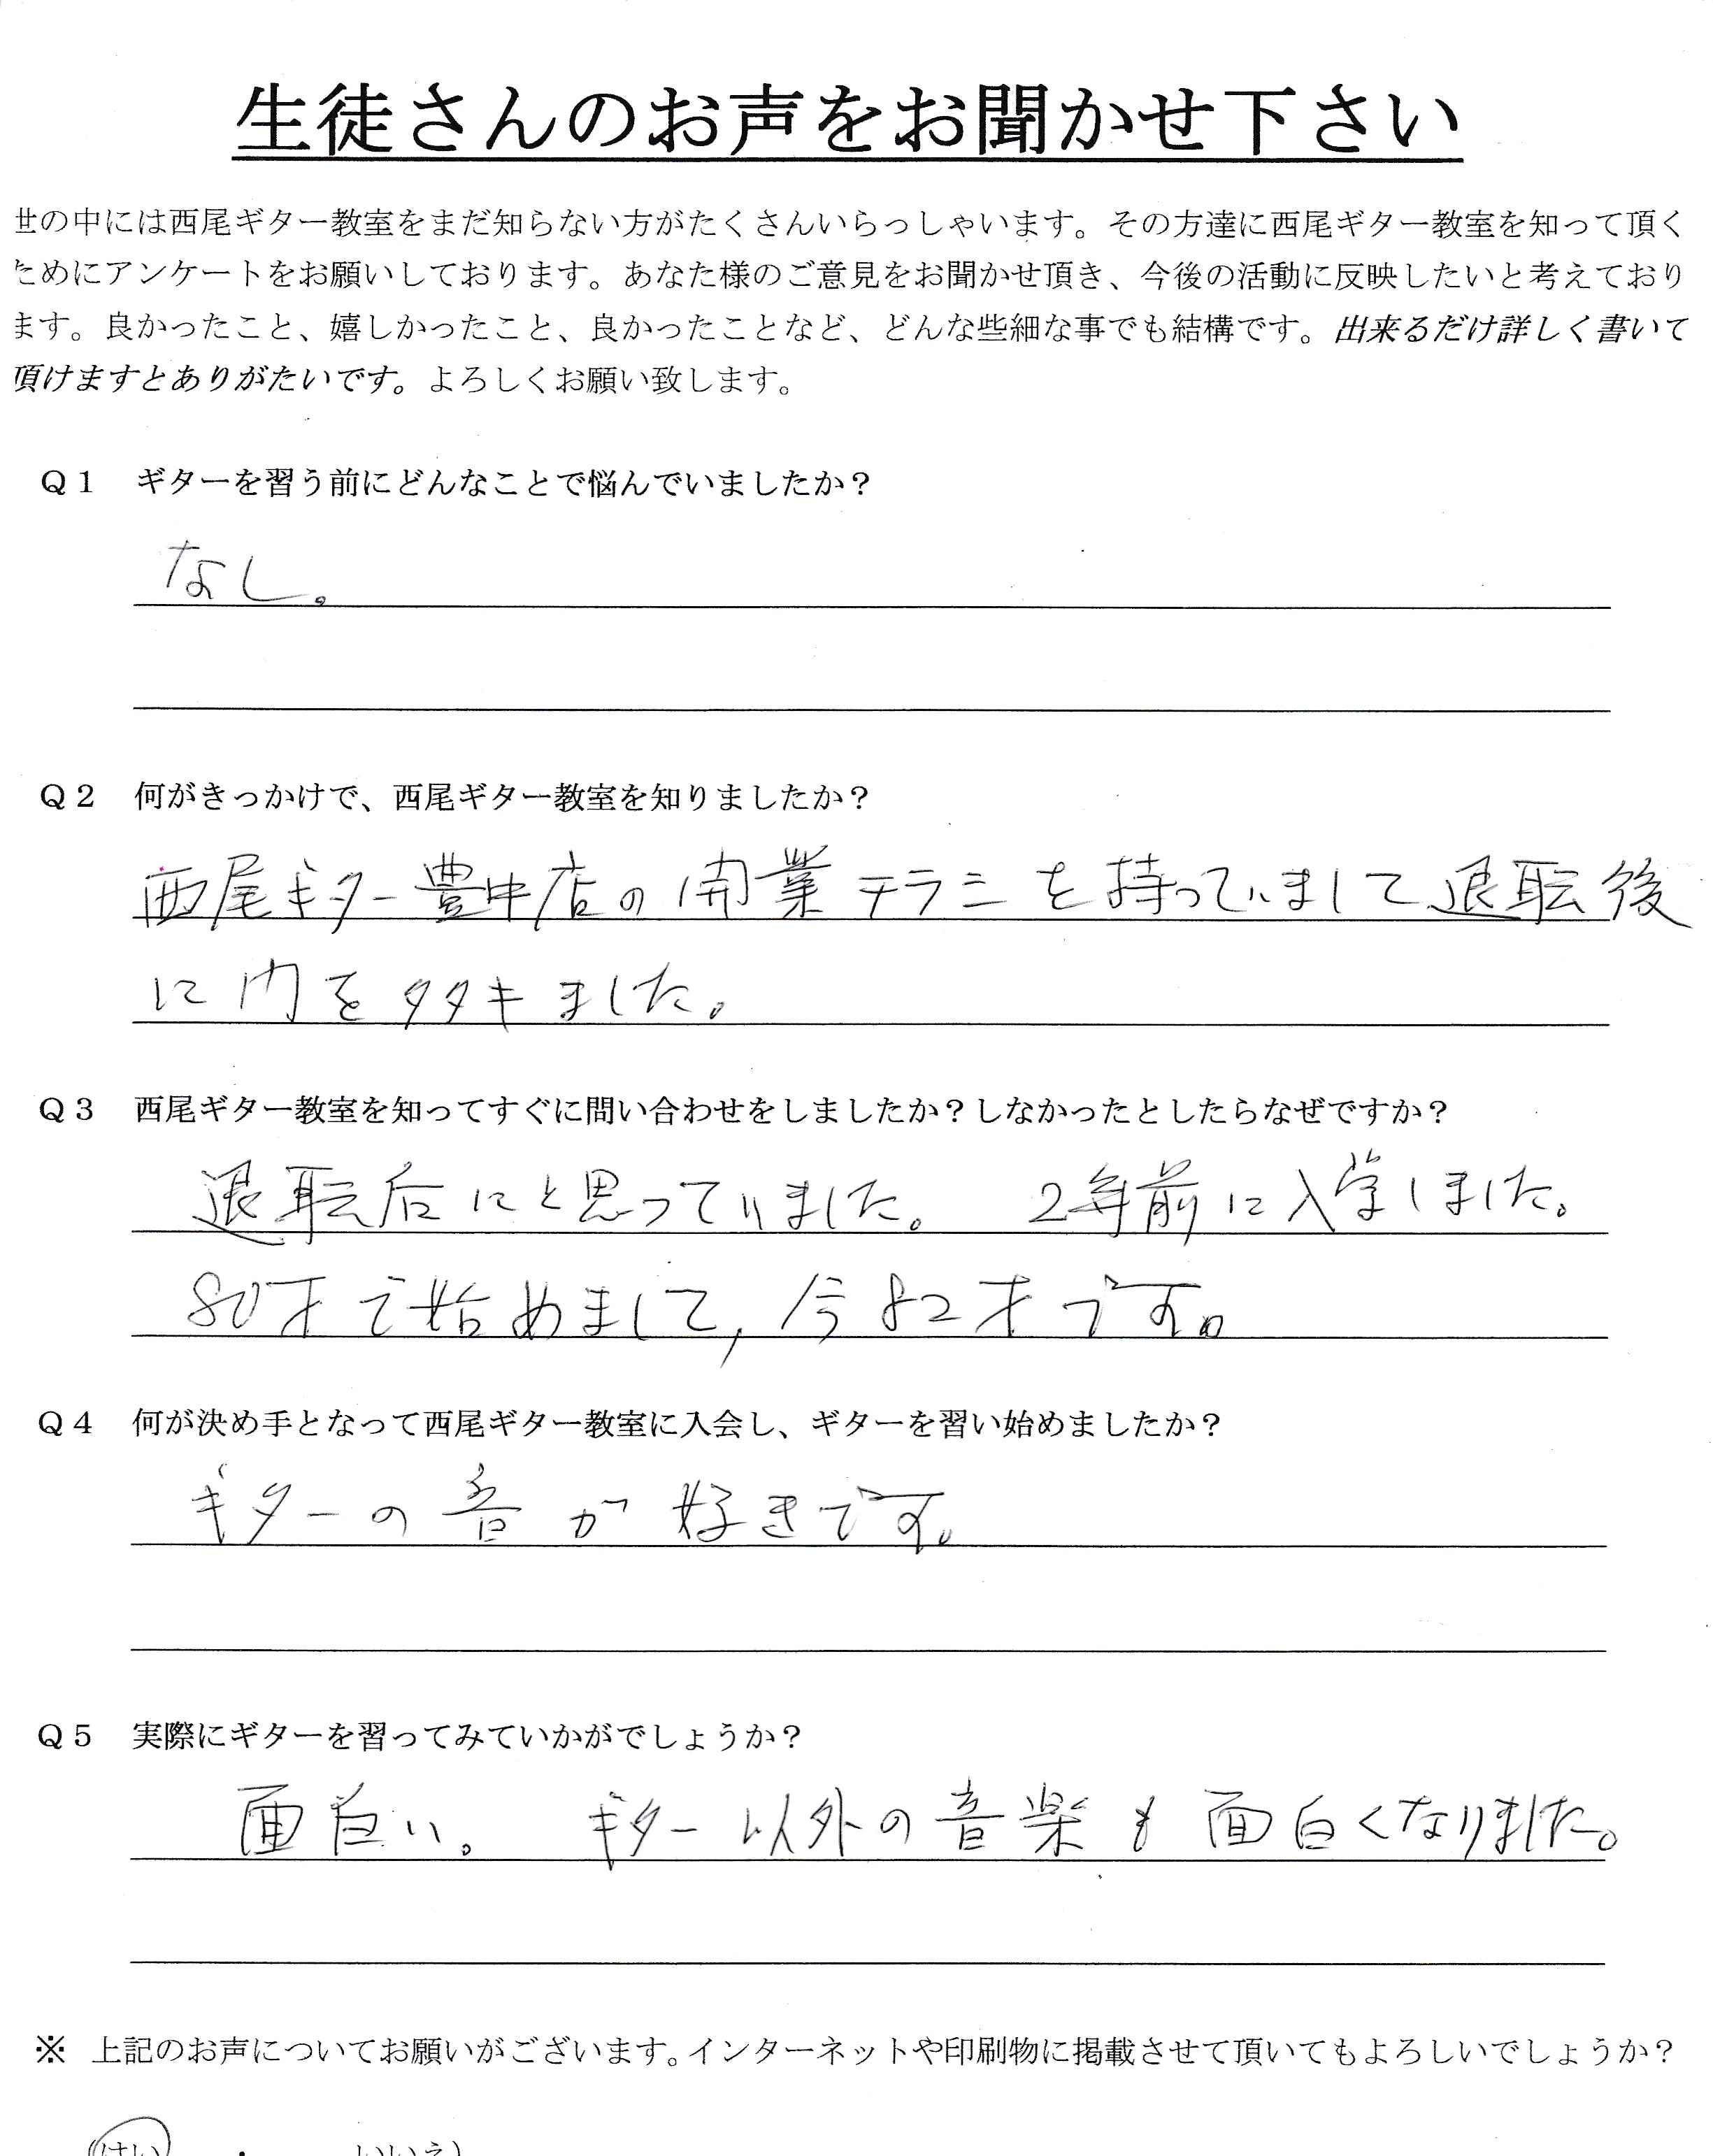 生徒さんのお声をお聞かせ下さい
世の中には西尾ギター教室をまだ知らない方がたくさんいらっしゃいます。その方達に西尾ギター教室を知って頂く
ためにアンケートをお願いしております。あなた様のご意見をお聞かせ頂き、今後の活動に反映したいと考えており
ます。良かったこと、嬉しかったこと、良かったことなど、どんな些細な事でも結構です。出来るだけ詳しく書いて
頂けますとありがたいです。よろしくお願い致します。
Q1 ギターを習う前にどんなことで悩んでいましたか？
なし。
Q2 何がきっかけで、西尾ギター教室を知りましたか？
西尾ギター豊中店の開業チラシを持っていまして退転後
に門をタタキました。
Q3 西尾ギター教室を知ってすぐに問い合わせをしましたか？しなかったとしたらなぜですか？
退転后にと思っていました。 2年前に入学しました。
80才で始めまして, 今82才です。
Q4 何が決め手となって西尾ギター教室に入会し、ギターを習い始めましたか？
ギターの音が好きです。
Q5 実際にギターを習ってみていかがでしょうか？
面白い。 ギター以外の音楽も面白くなりました。
※ 上記のお声についてお願いがございます。インターネットや印刷物に掲載させて頂いてもよろしいでしょうか？
(はい ・ いいえ)